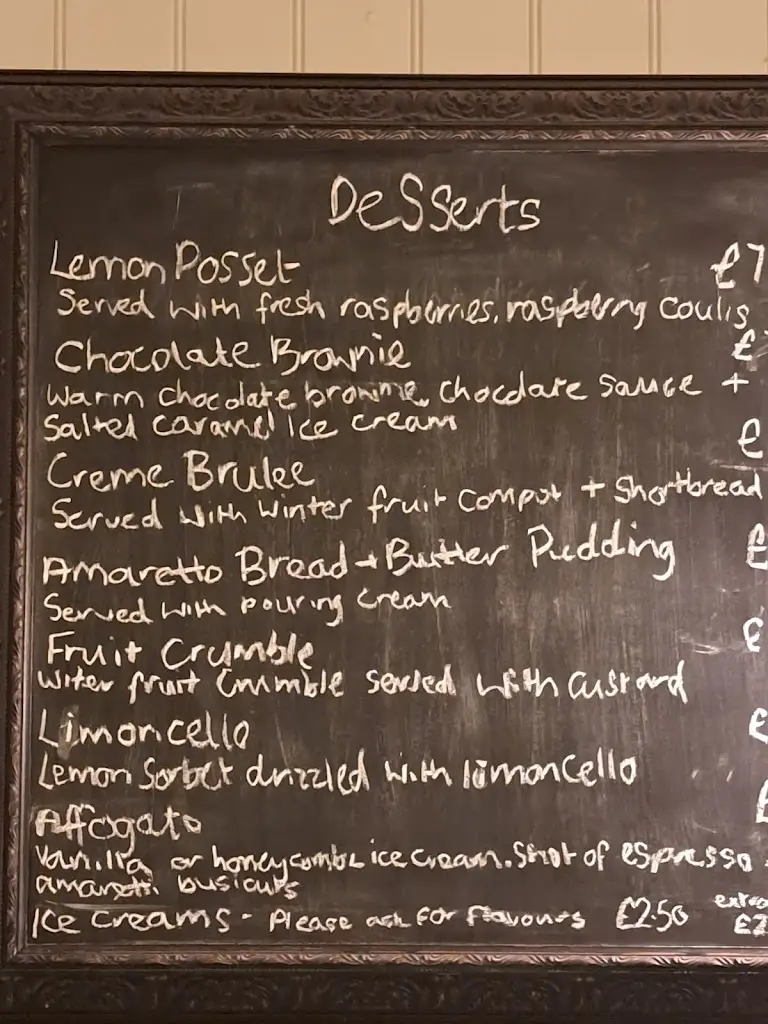 Desserts
Lemon Posset £7
Served with fresh raspberries, raspberry coulis
Chocolate Brownie £
Warm chocolate brownie, chocolate sauce +
Salted caramel Ice cream
£
Creme Brulee
Served with winter fruit compot + Shortbread
Amaretto Bread + Butter Pudding £
Served with pouring cream
Fruit Crumble £
Witer fruit Crumble served with custard
Limoncello £
Lemon Sorbet drizzled with limoncello
Affogato £
Vanilla or honeycombe ice cream. Shot of espresso
amaretti busicuts
Ice creams - Please ask for flavours £2.50 extra
£2